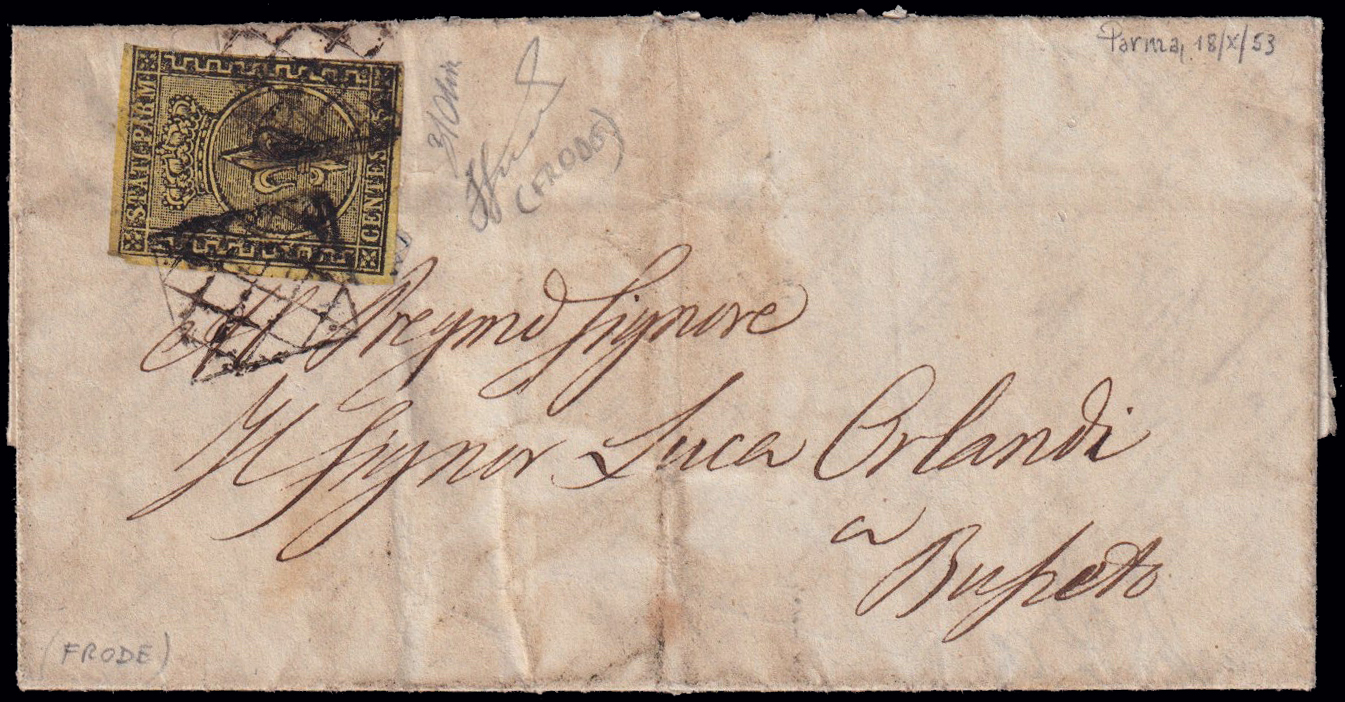 Parma, 18/X/53
STATI PARM.
CENTES. 5
(FRODE)
Al Preg.mo Signore
Il Signor Luca Orlandi
a
Busseto
(FRODE)